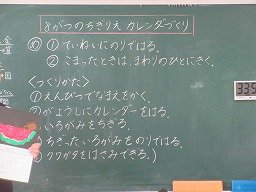 8がつのちぎりえ カレンダーづくり
め ① ていねいにのりではる。
② こまったときは、まわりのひとにきく。
<つくりかた>
① えんぴつでなまえをかく。
がようしにカレンダーをはる。
いろがみをちぎる。
ちぎったいろがみをのりではる。
(クワガタをはさみできる。)